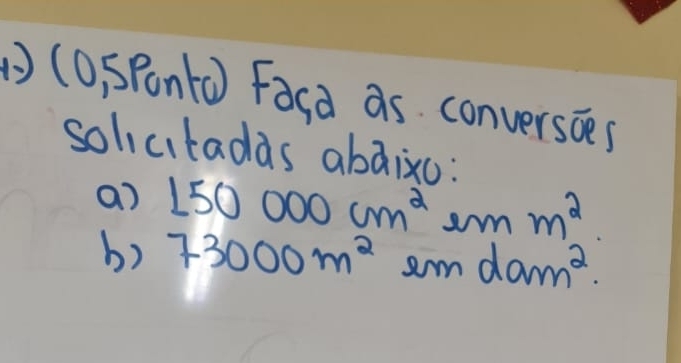 1-) (0,5 Ponto) Faça as conversões
solicitadas abaixo:
a) 150 000 cm² em m².
b) 73000 m² em dam².